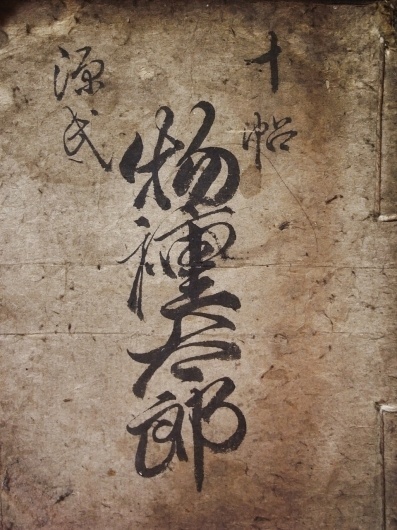 十帖
物種太郎
源氏